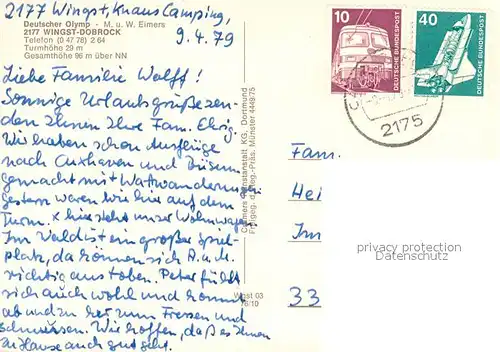 2177 Wingst, Knaus Camping,
9.4.79
Deutscher Olymp - M. u. W. Eimers
2177 WINGST-DOBROCK
Telefon (0 47 78) 2 64
Turmhöhe 29 m
Gesamthöhe 96 m über NN
Liebe Familie Wolff!
Sonnige Urlaubsgrüße sen-
den Ihnen Ihre Fam. Ehrig.
Wir haben schon Ausflüge
nach Cuxhaven und Büsum
gemacht mit Wattwanderung
gestern waren wir hier auf dem
Turm. x hier steht unser Wohnwagen
Im Wald ist ein großer Spiel-
platz, da können sich A. u. K.
richtig austoben. Peter fühlt
sich auch wohl und kommt
ab und zu her zum Fressen und
schmusen. Wir hoffen, daß es Ihnen
zu Hause auch gut geht.
Cramers Kunstanstalt KG, Dortmund
Freigeg. d. Reg.-Präs. Münster 4448/75
Wgst 03
78/10
10
DEUTSCHE BUNDESPOST
40
DEUTSCHE BUNDESPOST
2175
Fam.
Hei
Im
33
privacy protection
DSGVO Datenschutz